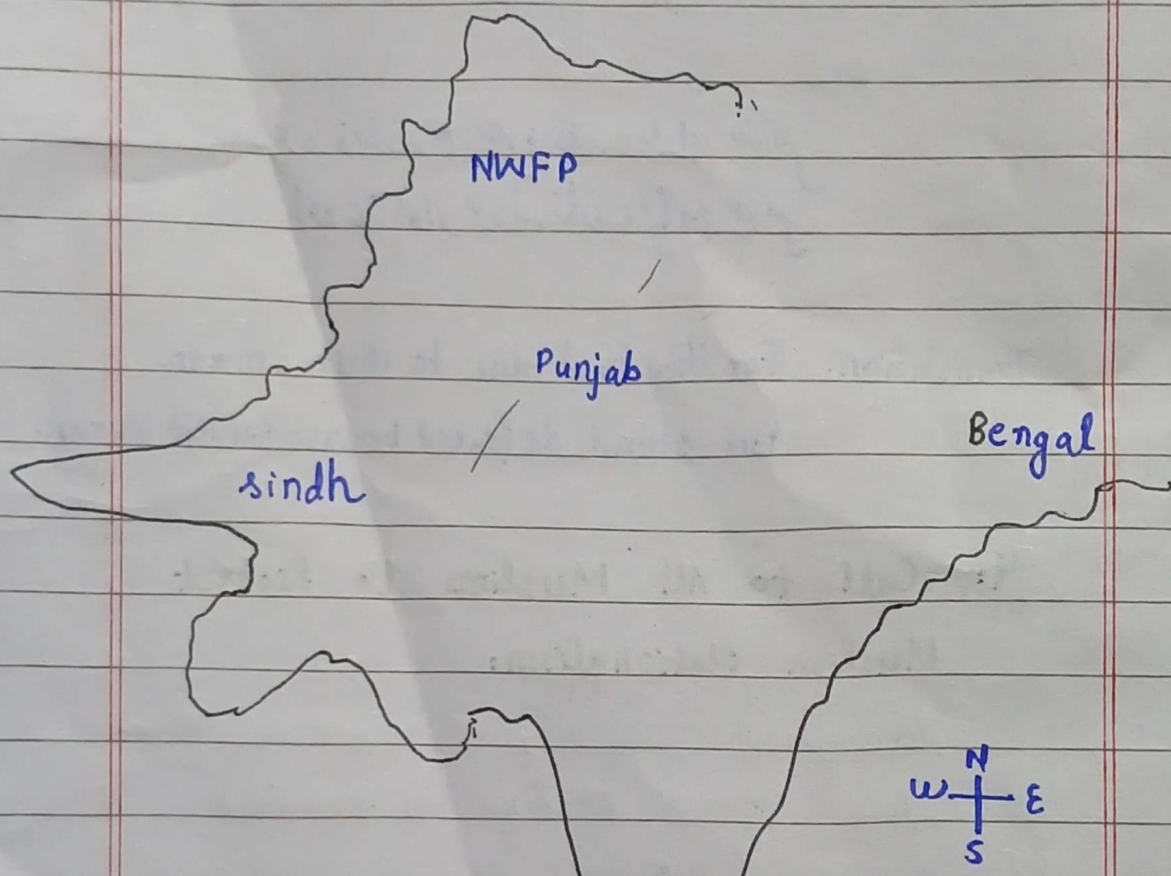 NWFP
Punjab
Bengal
sindh
N
W E
S